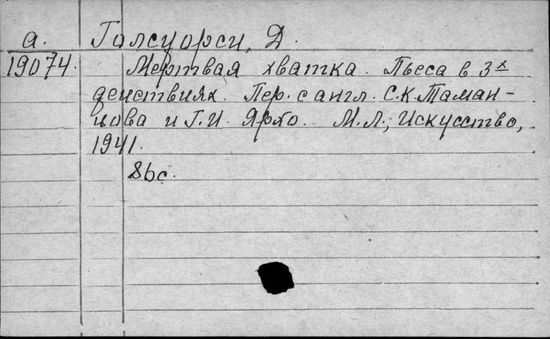 а. Голсуорси, Д.
19074. Мертвая хватка. Пьеса в 3х
действиях. Пер. с англ. С.К. Таман-
цова и Г.И. Ярхо. М.Л., Искусство,
1941.
86с.